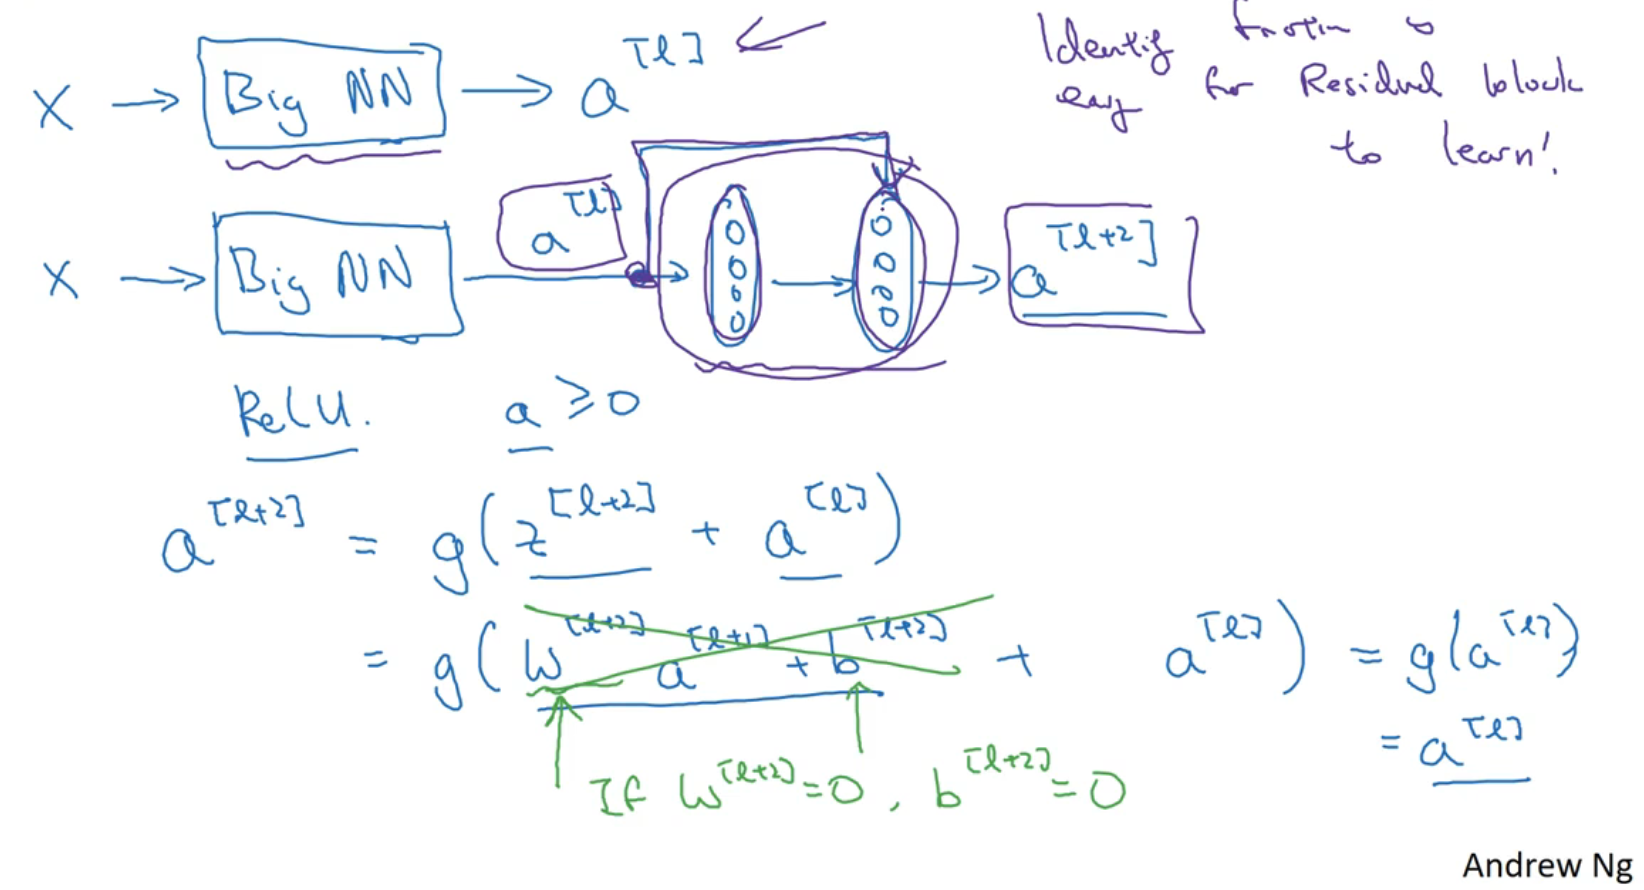 X → Big NN → a^[l]
Identity function is
easy for Residual block
to learn!
X → Big NN a^[l] → → a^[l+2]
ReLU. a ≥ 0
a^[l+2] = g(z^[l+2] + a^[l])
= g(W^[l+2] a^[l+1] + b^[l+2] + a^[l]) = g(a^[l])
= a^[l]
If W^[l+2] = 0, b^[l+2] = 0
Andrew Ng